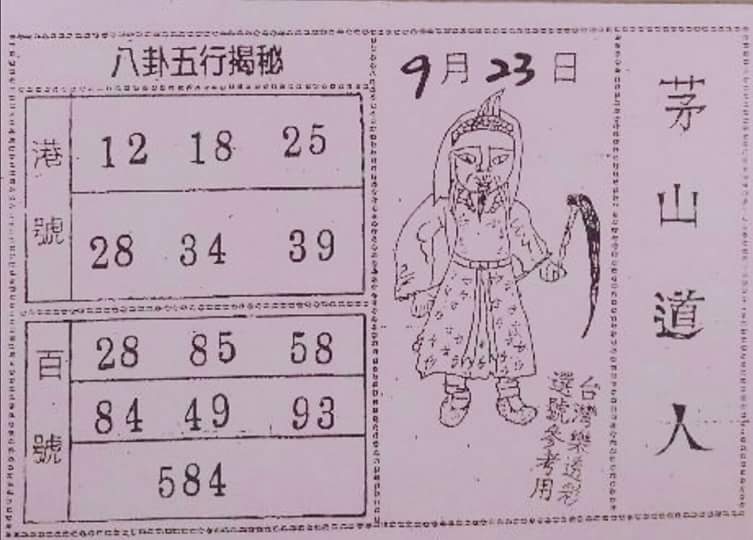 八卦五行揭秘
港號
12 18 25
28 34 39
百號
28 85 58
84 49 93
584
9月23日
台灣樂透彩
選號參考用
茅山道人